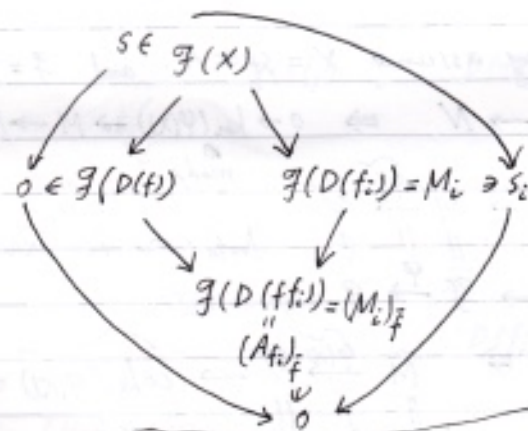 s ∈ ℱ(X)
0 ∈ ℱ(D(f)) ℱ(D(fᵢ)) = Mᵢ ∋ sᵢ
ℱ(D(ffᵢ)) = (Mᵢ)_f̄
(A_fᵢ)_f̄
0